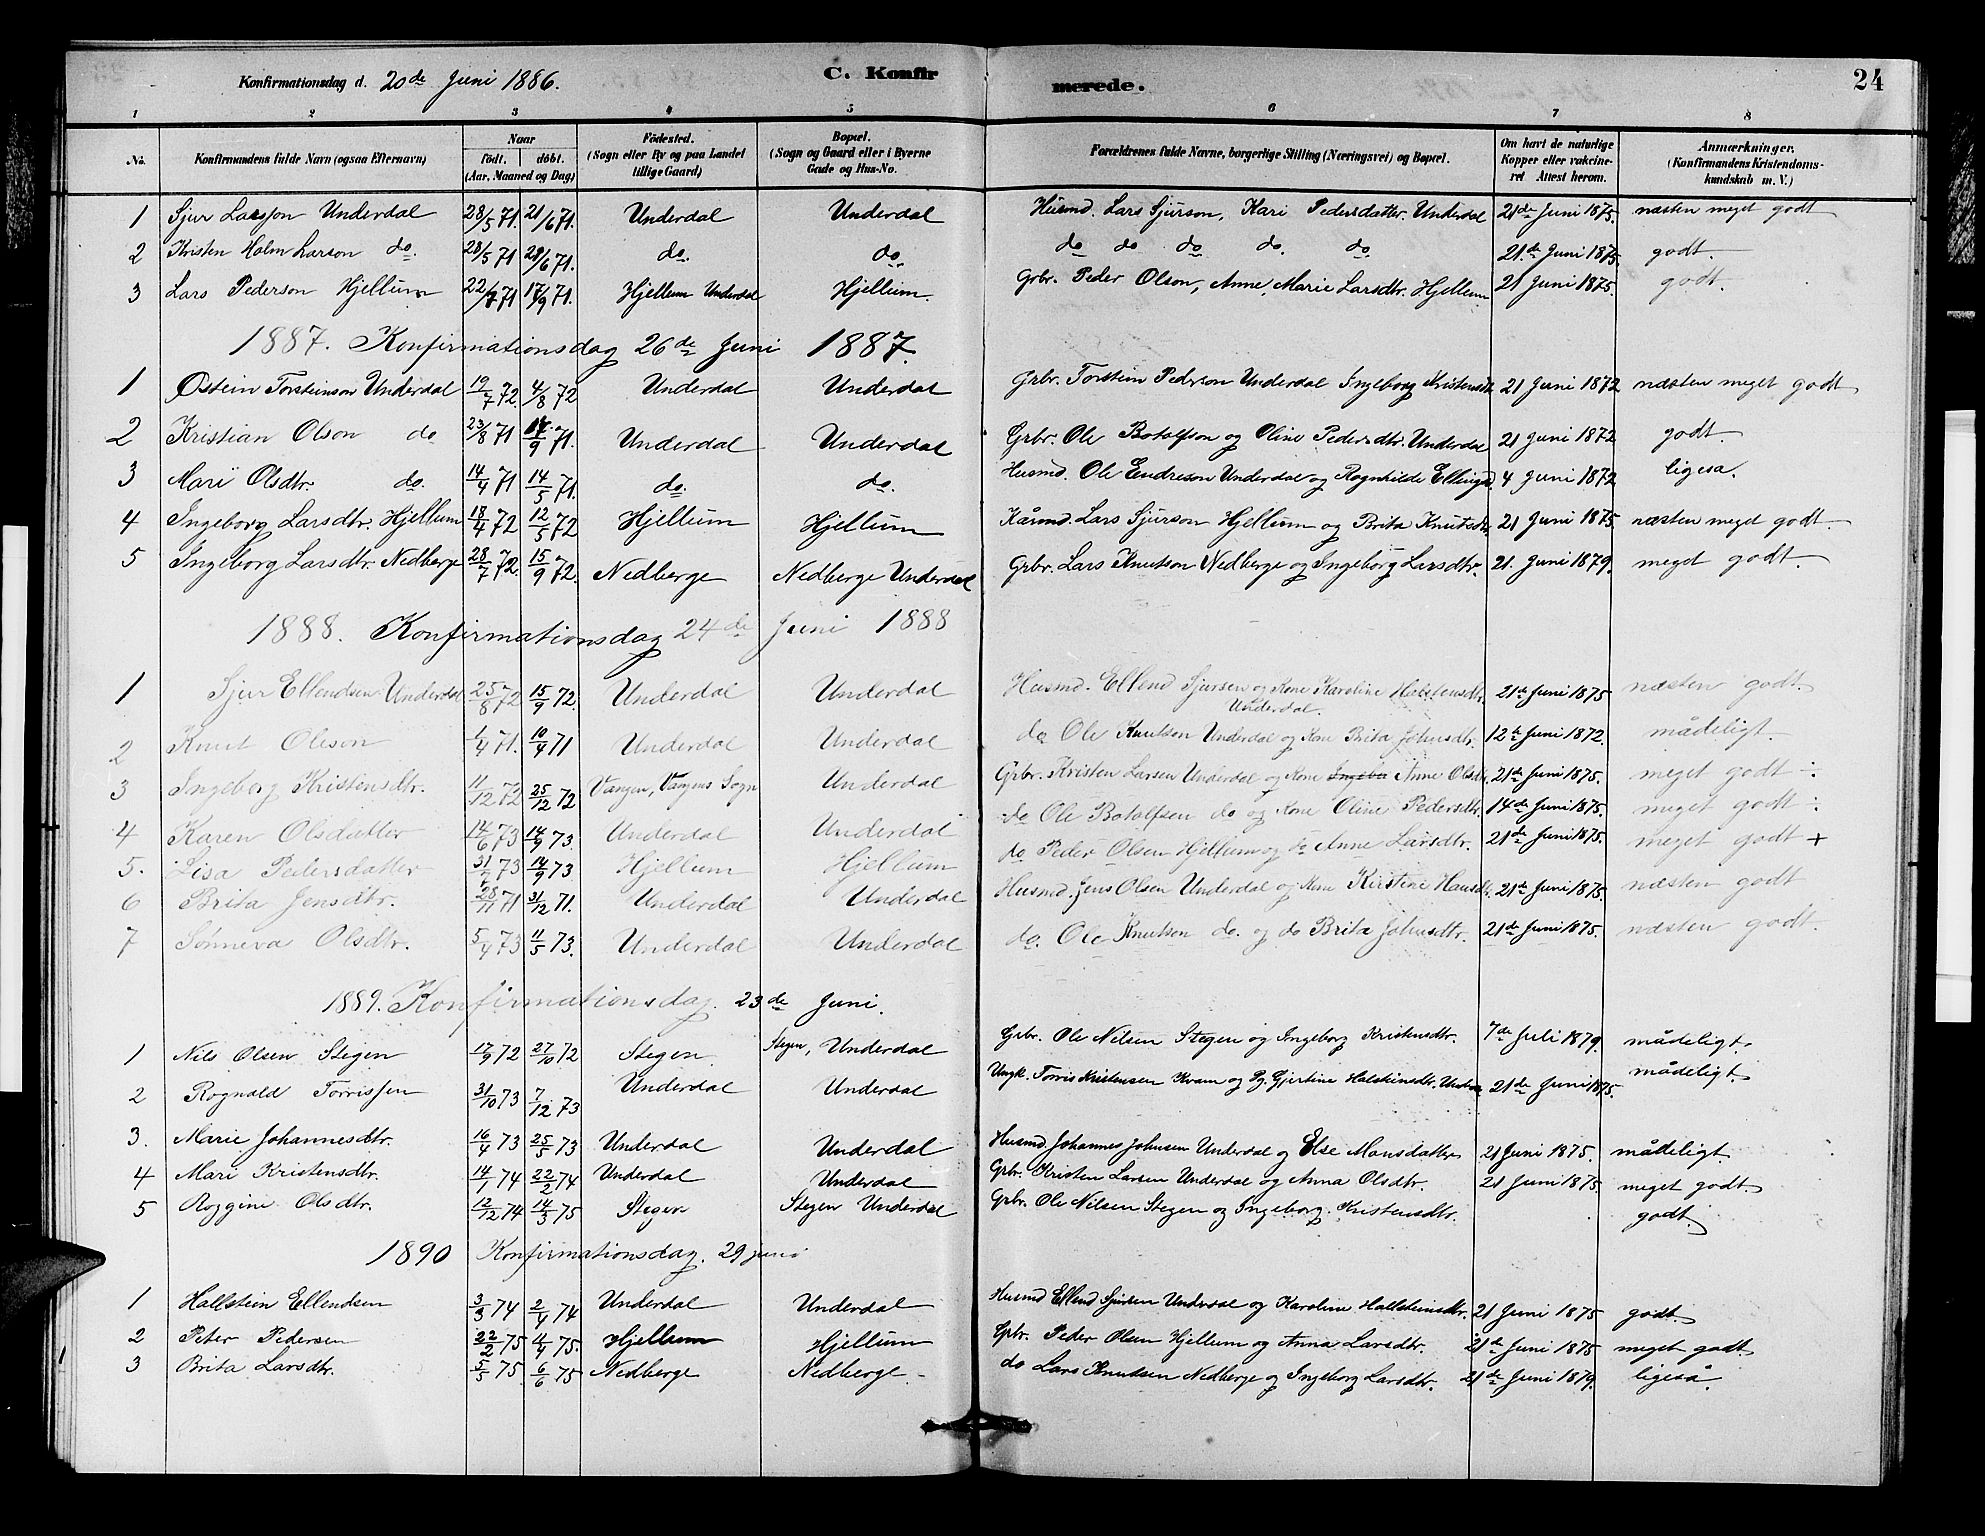 Konfirmationsdag d. 20de Juni 1886. C. Konfirmerede. 24
1 2 3 4 5 6 7 8
No. Konfirmandens fulde Navn (ogsaa Efternavn) Naar født. døbt. (Aar, Maaned og Dag) Fødested. (Sogn eller By og paa Landet tillige Gaard) Bopæl. (Sogn og Gaard eller i Byerne Gade og Hus-No. Forældrenes fulde Navne, borgerlige Stilling (Næringsvei) og Bopæl. Om havt de naturlige Kopper eller vakcineret Attest herom. Anmærkninger. (Konfirmandens Kristendomskundskab m. V.)
1 Sjur Larsson Underdal 28/5 71. 21/6 71. Underdal Underdal Husmd. Lars Sjurson, Kari Pedersdatter Underdal 21de Juni 1875. næsten meget godt
2 Kristen Holm Larson do. 28/5 71 21/6 71. do. do. do do do do. do. 21.de Juni 1875. godt.
3 Lars Pederson Hjellum 22/7 71 17/9 71. Hjellum Underdal Hjellum. Grbr. Peder Olson, Anne Marie Larsdtr. Hjellum 21 Juni 1875. godt.
1887. Konfirmationsdag 26de Juni 1887.
1 Østein Torsteinson Underdal 19/7 72. 4/8 72 Underdal Underdal Grbr. Torstein Pedrson Underdal Ingeborg Kristensdt. 21 Juni 1872 næsten meget godt
2 Kristian Olson do 23/8 71 17/9 71. Underdal Underdal Grbr. Ole Botolfson og Oline Pedersdtr. Underdal 21 Juni 1872 godt.
3 Mari Olsdtr. do. 14/4 71 14/5 71. do. do. Husmd. Ole Endreson Underdal og Ragnhilde Ellingsd. 4 Juni 1872 ligesa.
4 Ingeborg Larsdtr. Hjellum 18/4 72 12/5 72 Hjellum Hjellum Kårmd. Lars Sjurson Hjellum og Brita Knutsdtr. 21 Juni 1875. næsten meget godt
5 Ingeborg Larsdtr. Nedberge 28/7 72. 15/9 72. Nedberge Nedberge Underdal Grbr. Lars Knutson Nedberge og Ingeborg Larsdtr. 21. Juni 1879. meget godt.
1888. Konfirmationsdag 24de Juni 1888
1 Sjur Ellendsen Underdal 25/8 72 15/9 72. Underdal Underdal Husmd. Ellend Sjursen og Kone Karoline Halstensdtr. Underdal. 21de Juni 1875 næsten godt.
2 Knut Oleson 1/4 71. 10/4 71 Underdal Underdal do Ole Knutsen Underdal og Kone Brita Johnsdtr. 12te Juni 1872. mådeligt.
3 Ingeborg Kristensdtr. 11/12 72 25/12 72 Vangen, Vangens Sogn Underdal Grbr. Kristen Larsen Underdal og Kone Anne Olsdtr. 21de Juni 1875. meget godt ÷
4 Karen Olsdatter 14/6 73 14/9 73. Underdal Underdal do Ole Botolfsen do og Kone Oline Pedersdtr. 14de Juni 1875. meget godt ÷
5. Lisa Pedersdatter 31/7 73 14/9 73 Hjellum Hjellum do Peder Olsen Hjellum og do Anne Larsdtr. 21de Juni 1875. meget godt +
6 Brita Jensdtr. 28/11 71 31/12 71. Underdal Underdal Husmd. Jens Olsen Underdal og Kone Kirstine Hansdt. 21de Juni 1875. næsten godt
7 Sønneva Olsdtr. 5/4 73 11/5 73. Underdal Underdal do. Ole Knutsen do. og do Brita Johnsdtr. 21de Juni 1875. næsten godt.
1889. Konfirmationsdag. 23de Juni.
1 Nils Olsen Stegen 17/9 72 27/10 72 Stegen Stegen, Underdal Grbr. Ole Nilsen Stegen og Ingeborg Kristensdtr. 7de Juli 1879. mådeligt.
2 Rognald Torrissen 31/10 73 7/12 73 Underdal Underdal Ungk. Torris Kristensen Kvam og Pg. Gjertine Halsteinsdtr. 21de Juni 1875. mådeligt.
3. Marie Johannesdtr. 16/4 73 25/5 73 Underdal Underdal Husmd. Johannes Johnsen Underdal og Else Monsdatter 21 Juni 1875. mådeligt.
4 Mari Kristensdtr. 14/1 74 22/2 74 Underdal Underdal Grbr. Kristen Larsen Underdal og Anna Olsdtr. 21 Juni 1875. meget godt.
5 Olsdtr. 12/12 74 14/3 75 Stegen Stegen Underdal Grbr. Ole Nilsen Stegen og Ingeborg Kristensdtr. godt.
1890 Konfirmationsdag. 29 juni
1 Hallstein Ellendsen 3/3 74 2/4 74 Underdal Underdal Husmd Ellend Sjursen Underdal og Karoline Hallsteinsdtr. 21 Juni 1875 godt.
2 Peter Pedersen 22/2 75 4/4 75. Hjellum Hjellum Grbr. Peder Olsen Hjellum og Anna Larsdtr. 21de Juni 1875 meget godt.
3 Brita Larsdtr. 5/5 75 6/6 75 Nedberge Nedberge. do Lars Knudsen Nedberge og Ingeborg Larsdtr. 21de Juni 1879. ligeså.